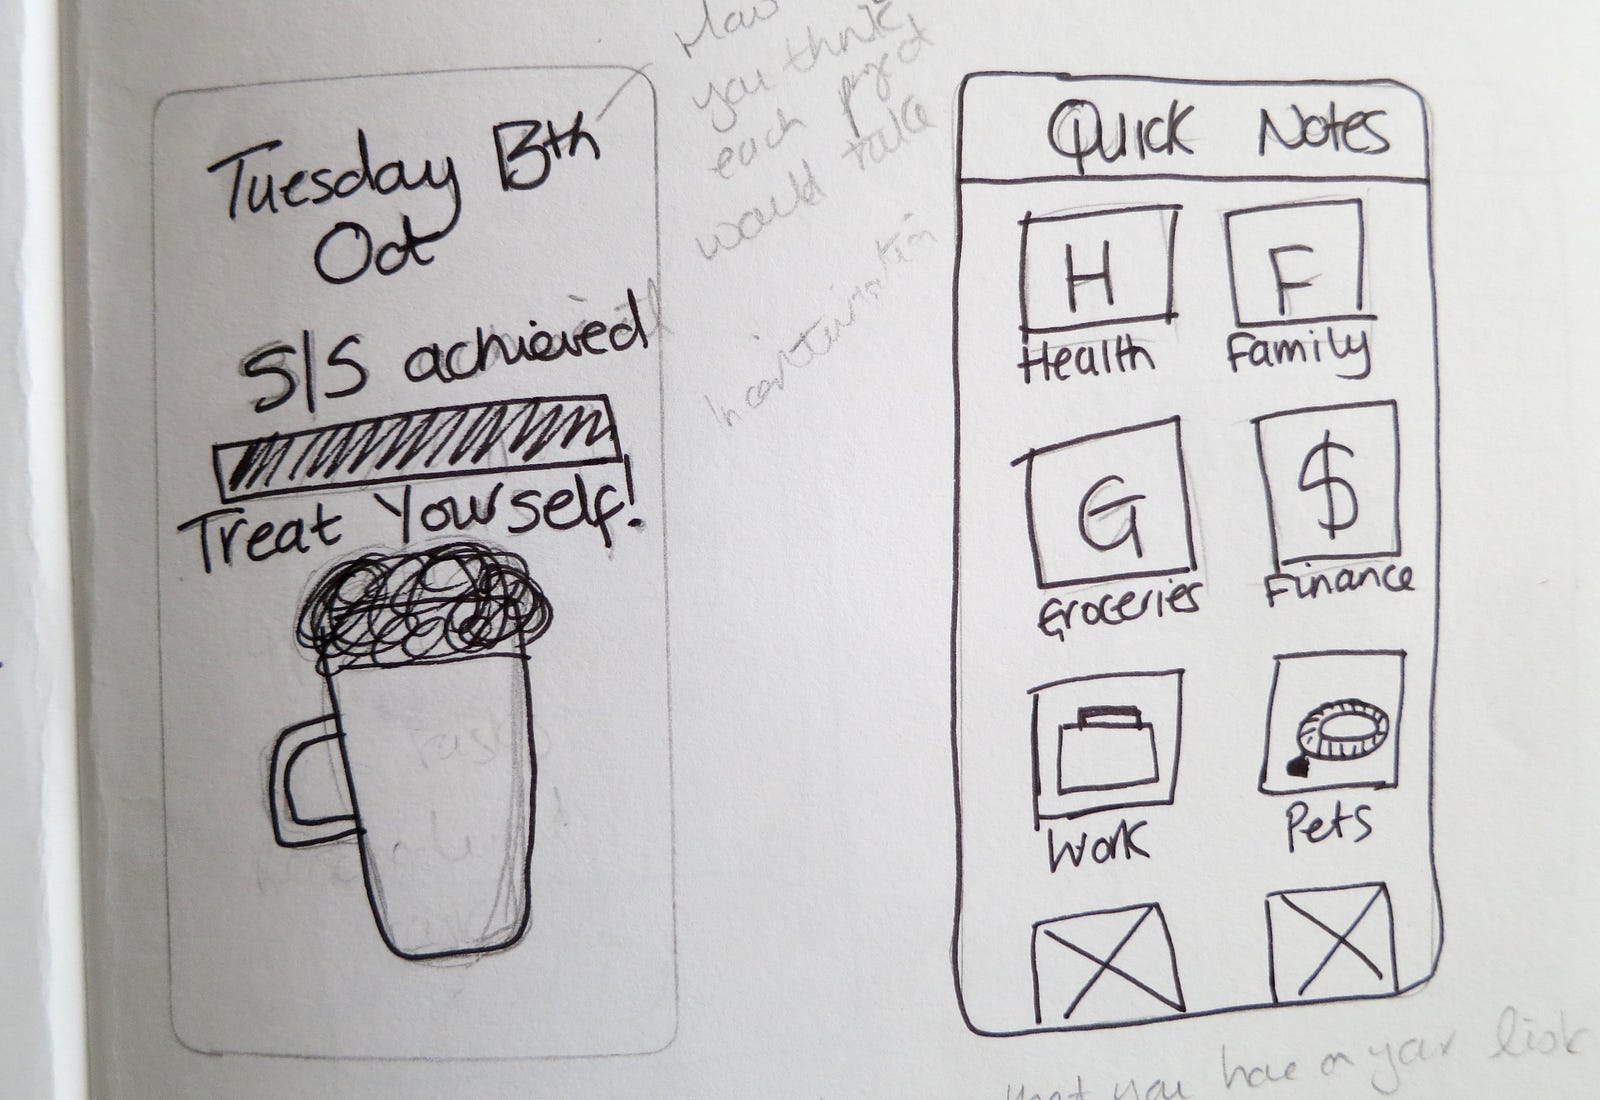 Tuesday 13th
Oct
5/5 achieved
Treat Yourself!
you think
each
would take
Quick Notes
H
F
Health
Family
G
$
Groceries
Finance
Work
Pets
you have on your list